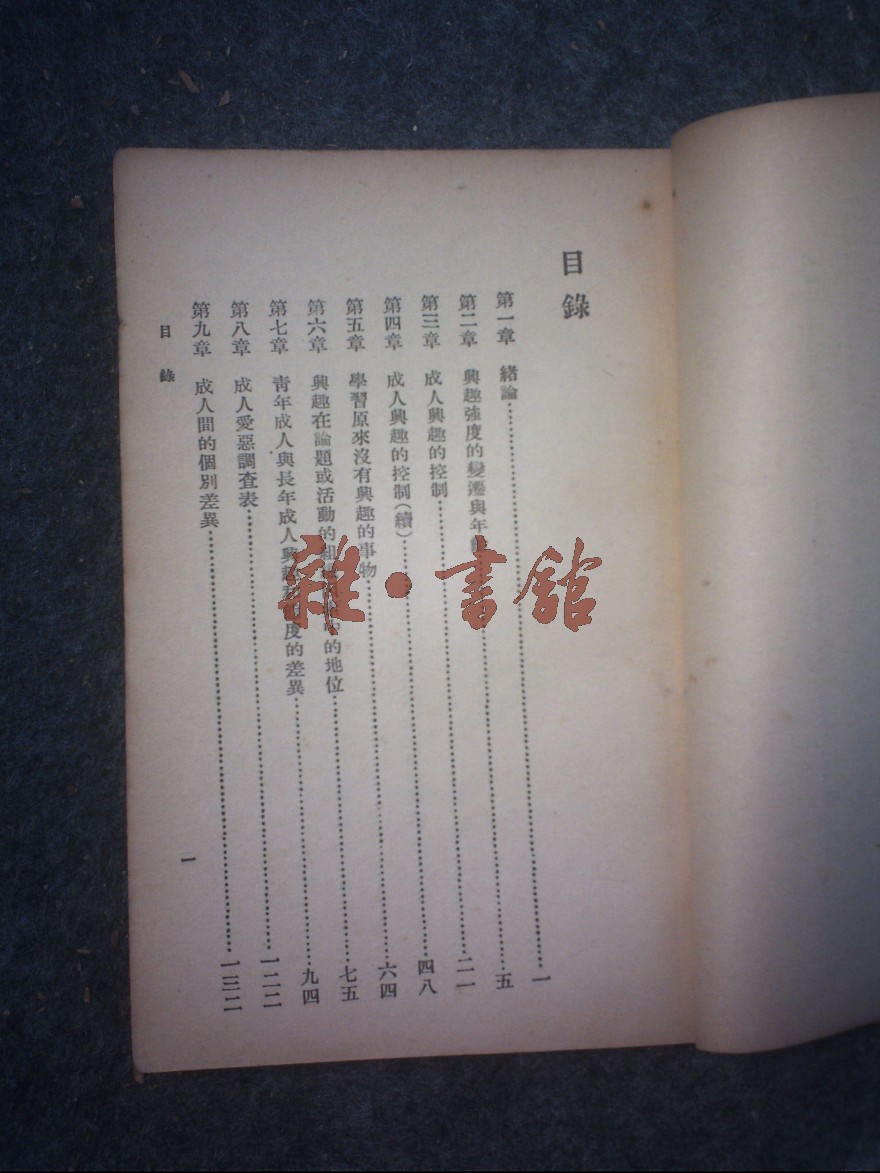 目錄
第一章 緒論…………一
第二章 興趣強度的變遷與年…………五
第三章 成人興趣的控制…………二一
第四章 成人興趣的控制(續)…………四八
第五章 學習原來沒有興趣的事物…………六四
第六章 興趣在論題或活動的組 的地位…………七五
第七章 青年成人與長年成人興 度的差異…………九四
第八章 成人愛惡調查表…………一二二
第九章 成人間的個別差異…………一三二
目錄
一
雜·書館